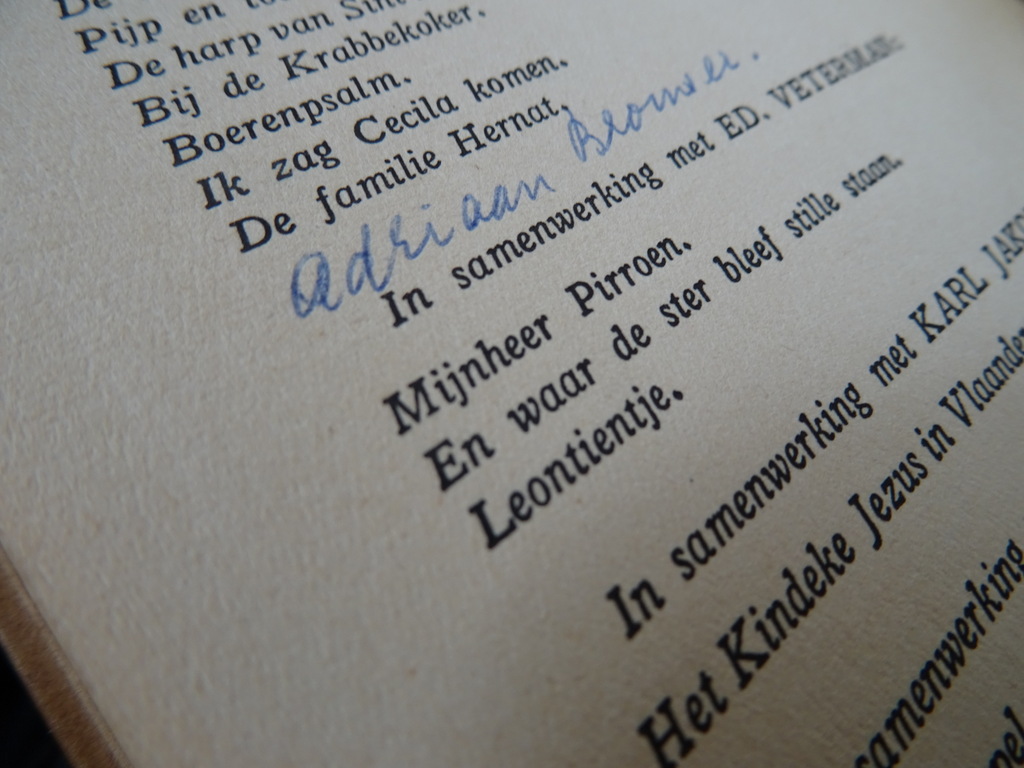 De
Pijp en
De harp van Sint
Bij de Krabbekoker.
Boerenpsalm.
Ik zag Cecila komen.
De familie Hernat.
Adriaan Brouwer.
In samenwerking met ED. VETERMAN:
Mijnheer Pirroen.
En waar de ster bleef stille staan.
Leontientje.
In samenwerking met KARL
Het Kindeke Jezus in
samenwerking